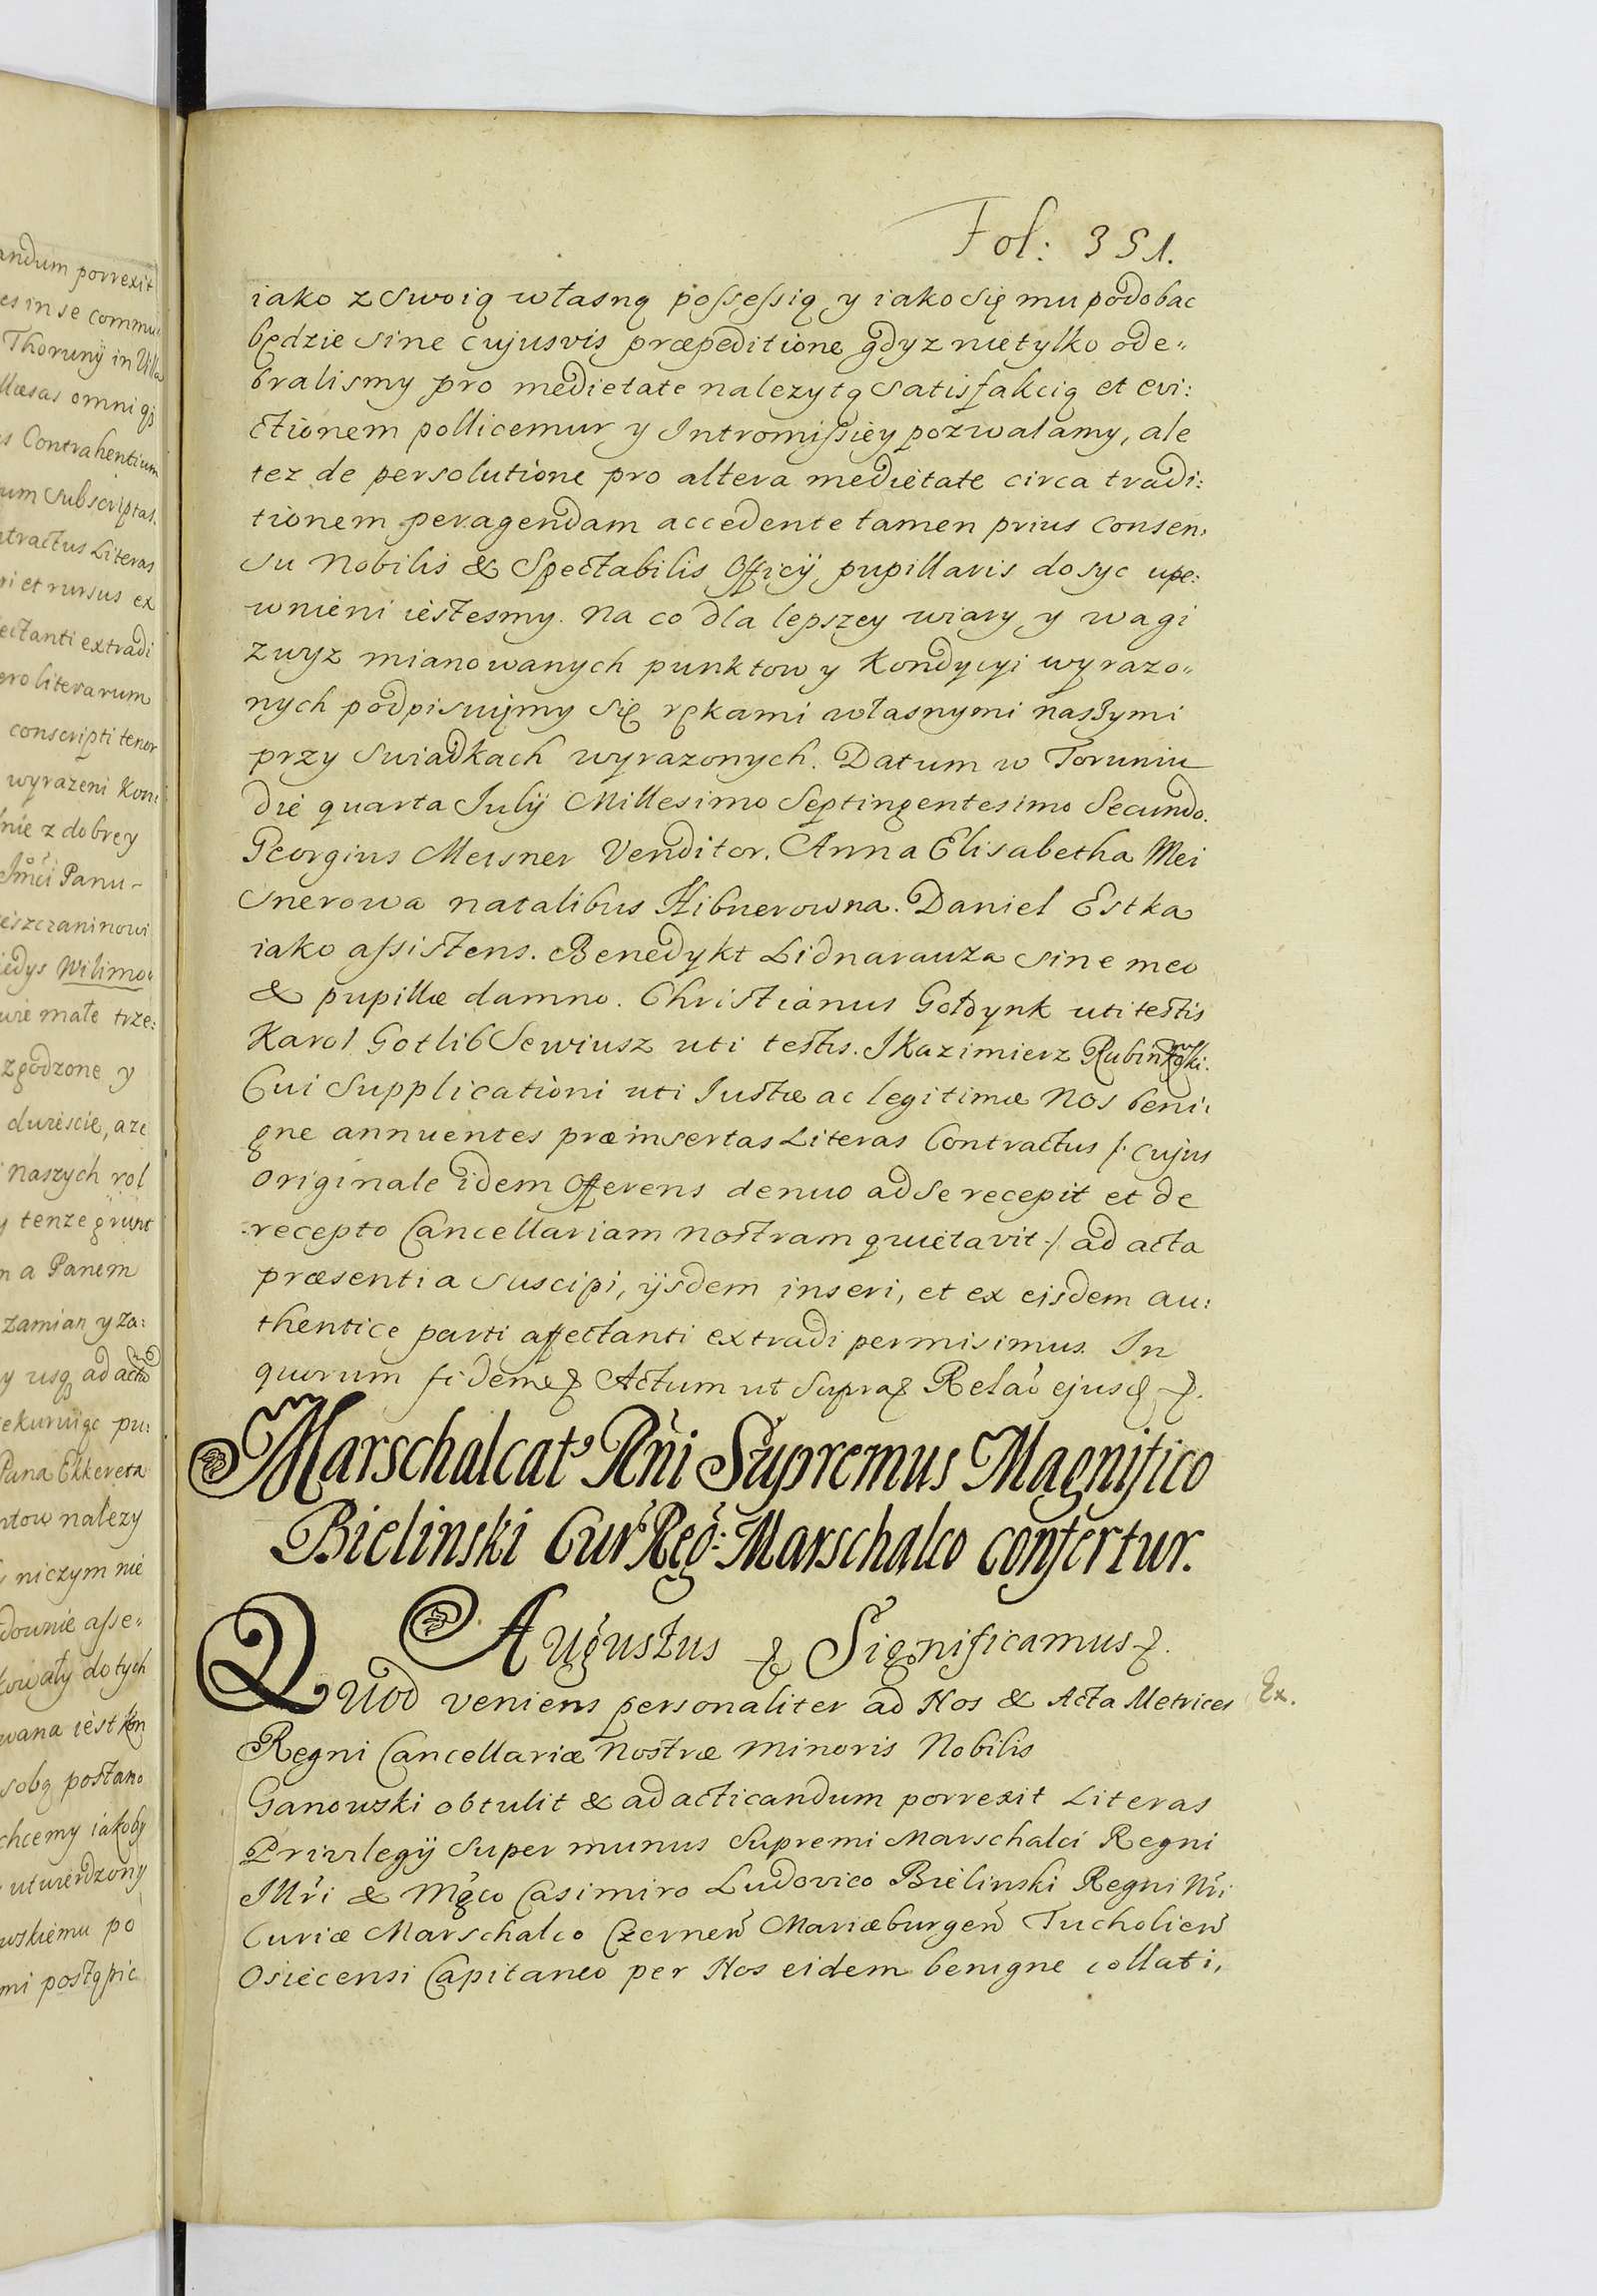 andum porrexit
es in se commu
Thorunÿ in Villa
llæsas omni qȝ
s Contrahentium
um subscriptas.
tractus Literas
ri et rursus ex
ectanti extradi
ero literarum
conscripti tenor
wyrazeni Kon
nie z dobrey
Jmći Panu
eszczaninowi
iedys Wilimo
wie małe trze:
zgodzone y
durescie, aze
naszych rol
y tenze grunt
n a Panem
zamian y za:
y usq ad acto
ekuruiąc pu:
Pana Ekkerta
ntow nalezy
niczym nie
downie asse„
kowały do tych
wana iest kon
sobą postano
chcemy iakoby
utwierdzony
wskiemu po
mi postąpic
Fol: 351.
iako z swoią własną possessią y iako się mu podobac
będzie sine cujusvis præpeditione gdyz nie tylko ode„
bralismy pro medietate nalezytą satisfakcią et evi:
ctionem pollicemur y Intromissiey pozwalamy, ale
tez de persolutione pro altera medietate circa tradi:
tionem peragendam accedente tamen prius consen,
su Nobilis & Spectabilis Officÿ pupillaris dosyc upe:
wnieni iestesmy. Na co dla lepszey wiary y wagi
zwyz mianowanych punktow y Kondycyi wyrazo„
nych podpisuiymy się rękami własnymi naszymi
przy swiadkach wyrazonych. Datum w Toruniu
die quarta Julÿ Millesimo Septingentesimo Secundo.
Georgius Meisner Venditor. Anna Elisabetha Mei
snerowa natalibus Hibnerowna. Daniel Estka
iako assistens. Benedykt Lidnarauza sine meo
& pupillæ damno. Christianus Goldynk uti testis
Karol Gotlib Sewiusz uti testis. J Kazimierz Rubinkowski.
Cui Supplicationi uti Justæ ac legitimæ Nos beni,
gne annuentes præinsertas Literas Contractus /: cujus
originale idem Offerens denuo ad se recepit et de
recepto Cancellariam nostram quietavit :/ ad acta
præsentia suscipi, ÿsdem inseri, et ex eisdem au:
thentice parti affectanti extradi permisimus. In
quorum fidem & Actum ut supra & Relaõ ejusd &.
Marschalcat9 Rñi Supremus Magnifico
Bielinski Cur. Reg: Marschalco confertur.
Augustus & Significamus &.
Quod veniens personaliter ad Nos & Acta Metrices
Ex.
Regni Cancellariæ Nostræ Minoris Nobilis
Ganowski obtulit & ad acticandum porrexit Literas
Privilegÿ super munus Supremi Marschalci Regni
Illri & Mgco Casimiro Ludovico Bielinski Regni Nri
Curiæ Marschalco Czerneñ Mariæburgeñ Tucholieñ
Osiecensi Capitaneo per Nos eidem benigne collati,